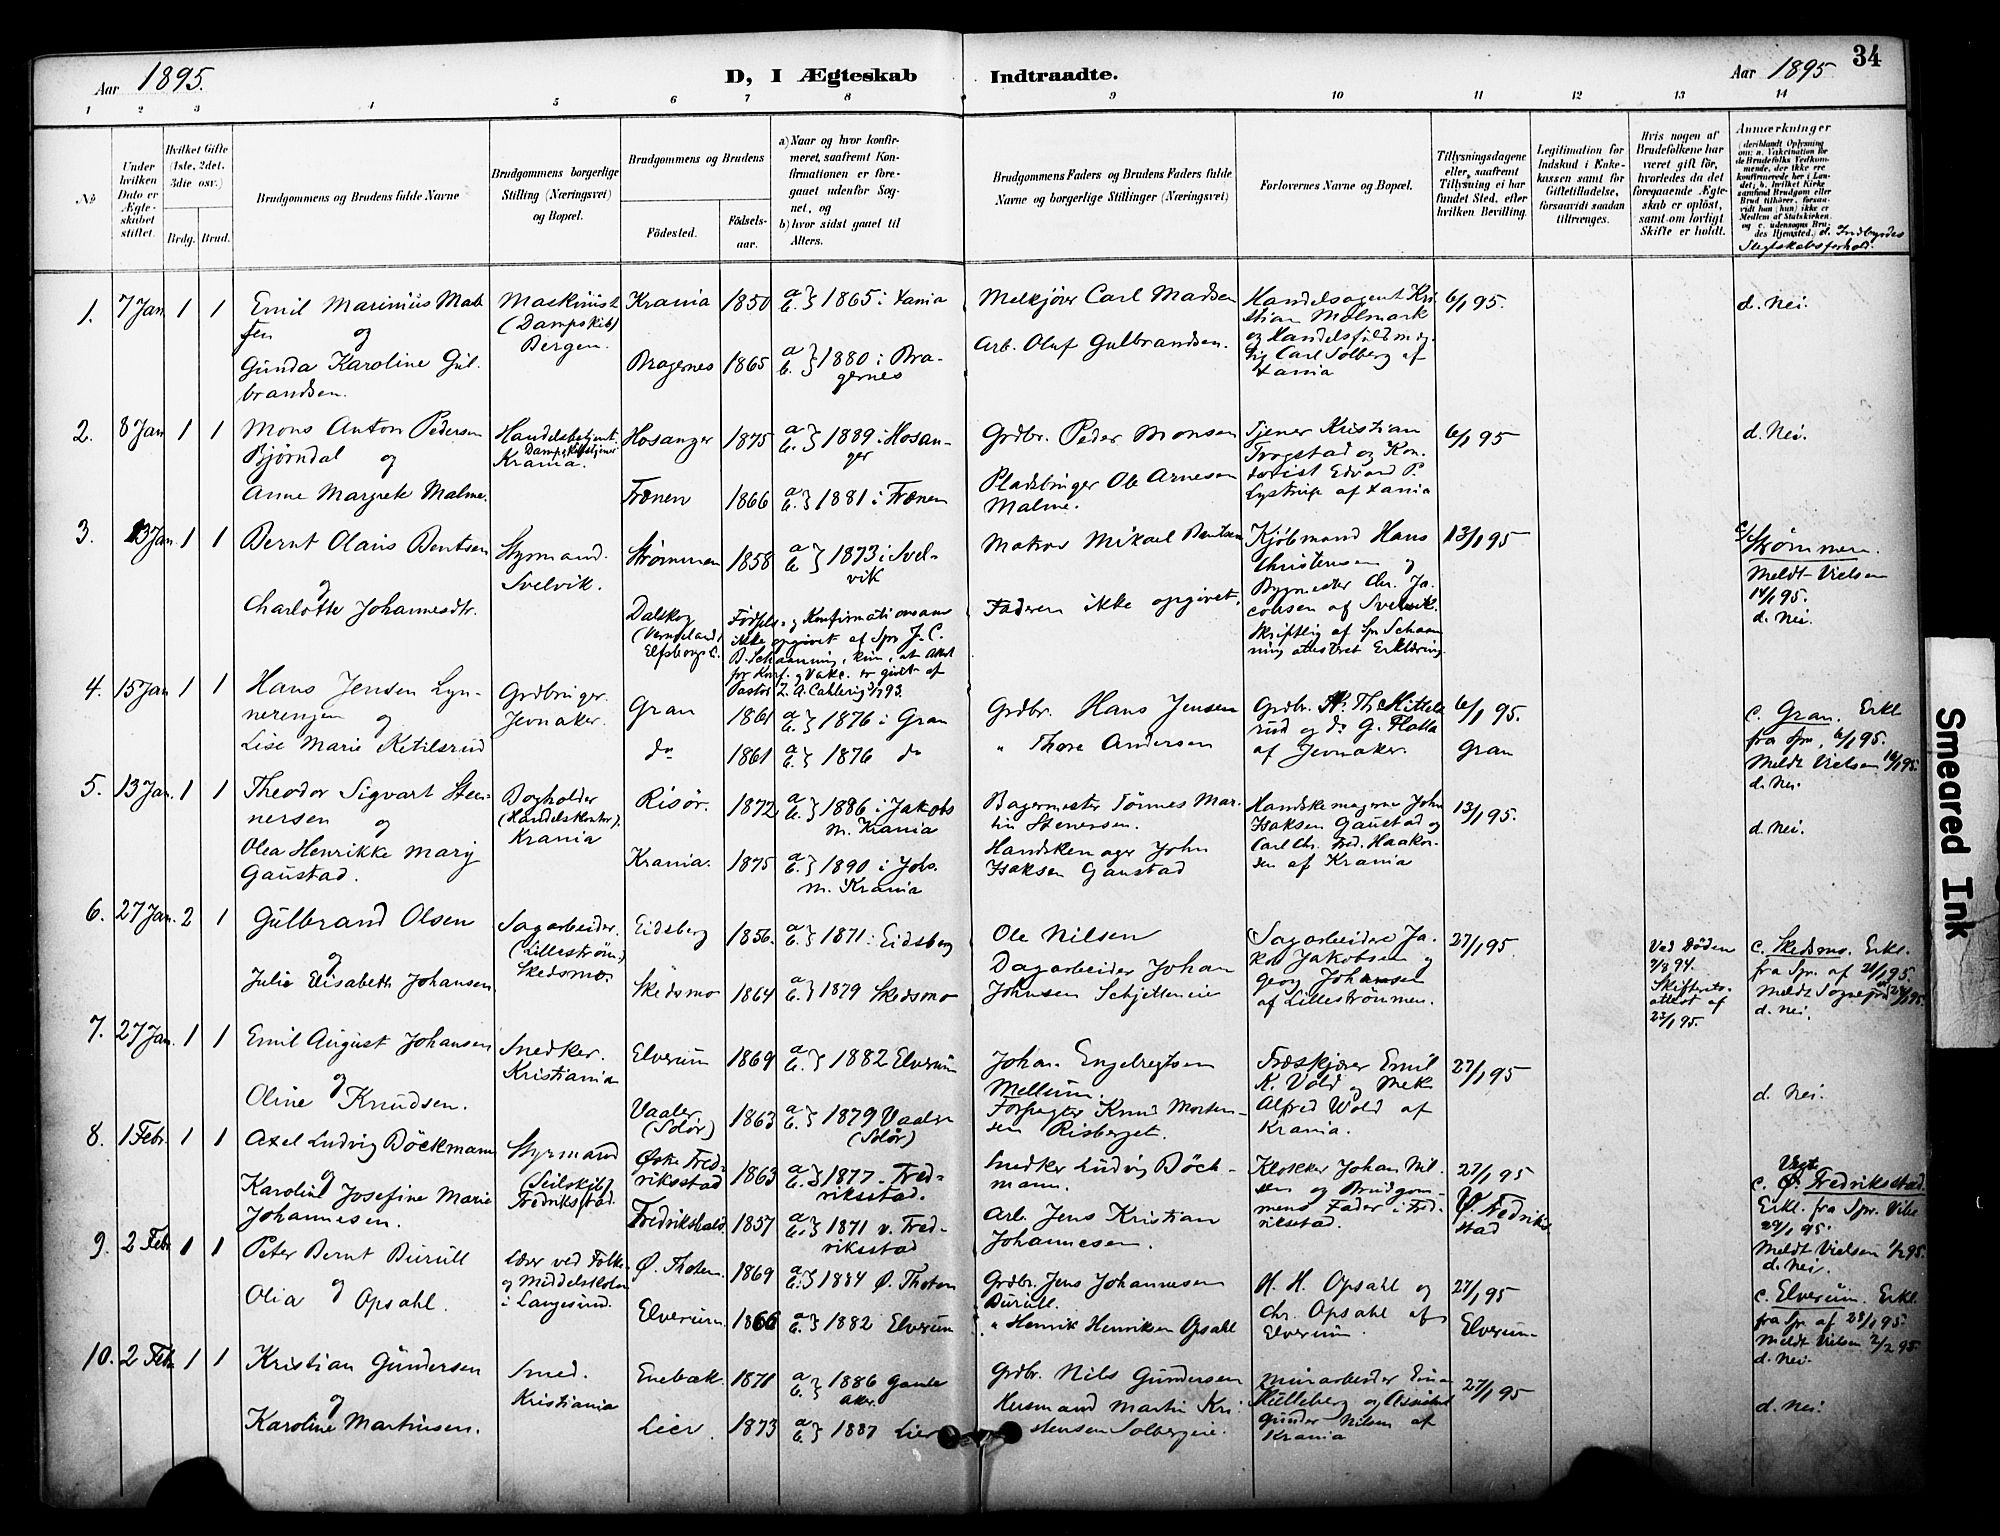 34
Aar 1895.
D, I Ægteskab
Indtraadte.
Aar 1895
1 2 3 4 5 6 7 8 9 10 11 12 13 14
No
Under hvilken Dato er Ægteskabet stiftet.
Hvilket Gifte (1ste, 2det. 3die osv.)
Brdg. Brud.
Brudgommens og Brudens fulde Navne
Brudgommens borgerlige Stilling (Næringsvei) og Bopæl.
Brudgommens og Brudens
Fødested.
Fødsels-aar.
a) Naar og hvor konfirmeret, saafremt Konfirmationen er foregaaet udenfor Sognet, og
b) hvor sidst gaaet til Alters.
Brudgommens Faders og Brudens Faders fulde Navne og borgerlige Stillinger (Næringsvei)
Forlovernes Navne og Bopæl.
Tillysningsdagene eller, saafremt Tillysning ei har fundet Sted, efter hvilken Bevilling.
Legitimation for Indskud i Enkekassen samt for Giftetilladelse, forsaavidt saadan tiltrænges.
Hvis nogen af Brudefolkene har været gift før, hvorledes da det foregaaende Ægteskab er opløst, samt om lovligt Skifte er holdt.
Anmærkninger
(deriblandt Oplysning om: a. Vakcination for de Brudefolks Vedkommende, der ikke ere konfirmerede her i Landet; b. hvilket Kirkesamfund Brudgom eller Brud tilhører, forsaavidt han (hun) ikke er Medlem af Statskirken, og c. udensogns Brudes Hjemsted.) d. Indbyrdes Slegtskabsforhold.
1. 7 Jan 1 1
Emil Marinius Mad
sen
og
Gunda Karoline Gul-
brandsen.
Maskinist
(Dampskib)
Bergen.
Krania 1850 a b } 1865 i Xania
Bragernes 1865 a b. } 1880 i Bra-
gernes
Melkjører Carl Madsen
Arb. Oluf Gulbrandsen.
Handelsagent Kri
stian Malmark
og Handelsfuldmæg-
tig Carl Solberg af
Xania
6/1 95.
d. Nei.
2. 8 Jan 1 1
Mons Anton Pedersen
Bjørndal og
Anne Margrete Malme.
Handelsbetjent.
Dampskibstjener
Krania.
Hosanger 1875 a b. } 1889 i Hosan-
ger
Frænen 1866 a b. } 1881 i Frænen
Grdbr. Peder Monsen
Pladsbruger Ole Arnesen
Malme.
Tjener Kristian
Trogstad og Kon-
torist Edvard P.
Lystrup af Xania
6/1 95
d. Nei.
3. 13 Jan 1 1
Bernt Olaus Bentsen
og
Charlotte Johannesdtr.
Styrmand.
Svelvik.
Strømmen 1858 a b } 1873 i Svel-
vik
Dalskog
(Vermeland,
Elfsborgs L.
Fødsels- og Konfirmationsaar
ikke opgivet af Spr J. C.
B. Schanning, kun, at Attest
for Konf. og Vakc. er givet af
Pastor Z. A. Cahlerig 3/1 93.
Matros Mikael Bentsen
Faderen ikke opgivet.
Kjøbmand Hans
Christensen og
Bygmester Chr. Ja-
cobsen af Svelvik.
Skriftlig af Spr Schaan
ning attesteret Erklæring
13/1 95
c/ Strømmen.
Meldt Vielsen
14/1 95.
d. Nei.
4. 15 Jan 1 1
Hans Jensen Lyn-
nerengen og
Lise Marie Ketilsrud
Grdbruger.
Jevnaker.
Gran 1861 a b. } 1876 i Gran
do 1861 a b. } 1876 do
Grdbr. Hans Jensen
" Thore Andersen
Grdbr. H. Th. Mittels
rud og do G. Flatla
af Jevnaker.
6/1 95.
Gran
c. Gran. Erkl
fra Spr. 6/1 95.
Meldt Vielsen 16/1 95.
d. Nei.
5. 13 Jan. 1 1
Theodor Sigvart Sten-
nersen og
Olea Henrikke Mary
Gaustad.
Bogholder
(Handelskontor).
Krania
Risør. 1872 a b. } 1886 i Jakobs
m. Krania
Krania. 1875 a b. } 1890 i Johs.
m. Krania
Bagermester Tønnes Mar-
tin Stenersen.
Handskemager John
Isaksen Gaustad
Handskemagerne John
Isaksen Gaustad og
Carl Chr. Fred. Haakon-
sen af Krania
13/1 95.
d. Nei.
6. 27 Jan. 2 1
Gulbrand Olsen
og
Julie Elisabeth Johansen
Sagarbeider.
(Lillestrøm)
Skedsmo.
Eidsberg 1856. a b. } 1871 i Eidsberg
Skedsmo 1864 a b. } 1879 Skedsmo
Ole Nilsen
Dagarbeider Johan
Johnsen Schjetteneie
Sagarbeidere Ja-
kob Jakobsen og
Georg Johansen
af Lillestrømmen.
27/1 95.
Ved Døden
7/8 94.
Skifterets-
attest af
23/1 95.
c. Skedsmo. Erkl.
fra Spr. af 21/1 95
Meldt Sognepr 28/1 95.
d. Nei.
7. 27 Jan. 1 1
Emil August Johansen
og
Oline Knudsen.
Snedker.
Kristiania
Elverum 1869 a b. } 1882 Elverum
Vaaler
(Solør) 1863 a b. } 1879 Vaaler
(Solør)
Johan Engebretsen
Mellum.
Forpagter Knud Morten-
sen Risberget.
Træskjærer Emil
K. Vold og Mek
Alfred Wold af
Krania.
27/1 95
d. Nei.
8. 1 Febr. 1 1
Axel Ludvig Böckmann
og
Karoline Josefine Marie
Johannesen.
Styrmand
(Seilskib)
Fredriksstad.
Østre Fred-
riksstad 1863 a b. } 1877 Fred-
riksstad.
Fredrikshald 1857 a b. } 1871 v. Fred-
riksstad
Snedker Ludvig Böck-
mann.
Arb. Jens Kristian
Johannesen.
Klokker Johan Nil-
sen og Brudgom-
mens Fader i Fred-
riksstad.
27/1 95
Ø. Fredriks
stad
Vestr
c. Ø. Fredriksstad.
Erkl. fra Spr. Vibe
29/1 95.
Meldt Vielsen 1/2 95.
d. Nei.
9. 2 Febr 1 1
Peter Bernt Burull
og
Olia Opsahl.
Lærer ved Folke-
og Middelskolen
i Langesund.
Ø. Thoten. 1869 a b. } 1884 Ø. Thoten
Elverum. 1866 a b. } 1882 Elverum
Grdbr. Jens Johannesen
Burull.
" Henrik Henriksen Opsahl
H. H. Opsahl og
Chr. Opsahl af
Elverum.
27/1 95
Elverum
c. Elverum. Erkl.
fra Spr af 28/1 95.
Meldt Vielsen 2/2 95.
d. Nei.
10. 2 Febr 1 1
Kristian Gundersen
og
Karoline Martinsen.
Smed.
Kristiania
Enebak. 1871 a b. } 1886 Gamle
Aker.
Lier. 1873 a b. } 1887 Lier
Grdbr. Nils Gundersen
Husmand Martin Kri-
stensen Solbergeie.
Murarbeider Einar
Kulleberg og Assistent
Gunder Nilsen af
Krania
27/1 95
d. Nei.
Smeared Ink